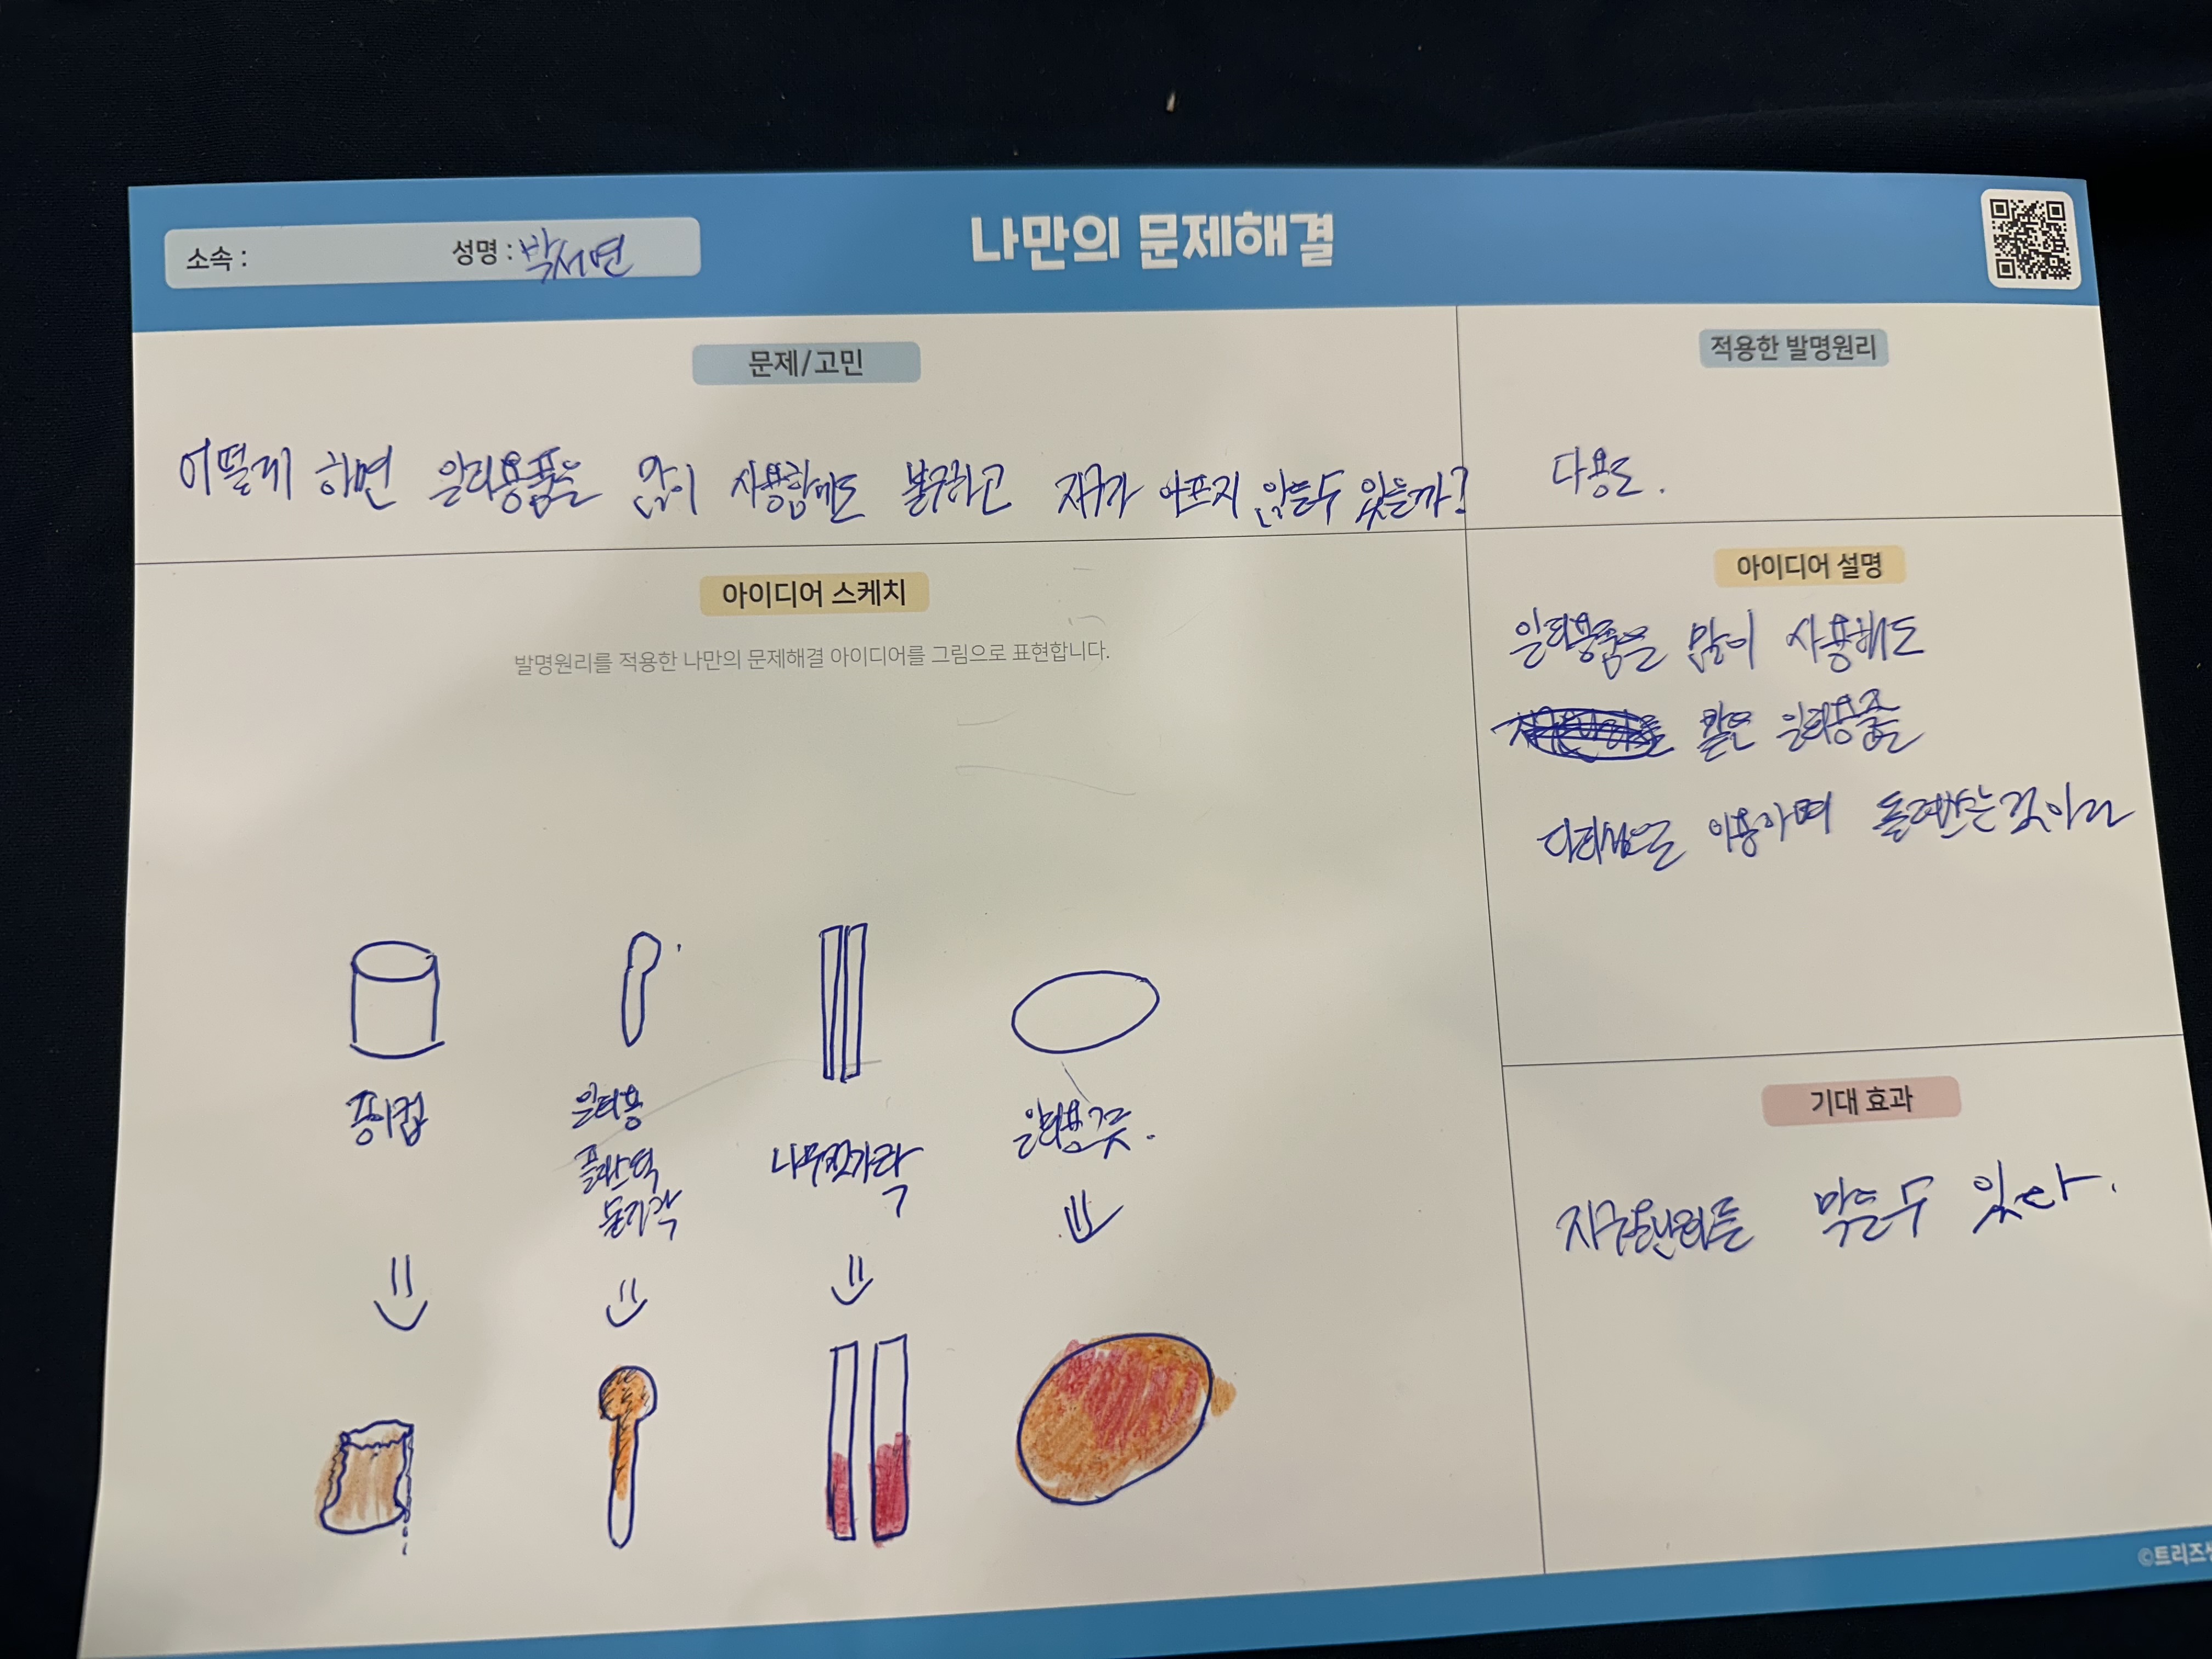 나만의 문제해결
소속 :
성명 : 박서연
문제/고민
어떻게 하면 일회용품을 많이 사용함에도 불구하고 지구가 아프지 않을수 있을까?
적용한 발명원리
다용도.
아이디어 스케치
발명원리를 적용한 나만의 문제해결 아이디어를 그림으로 표현합니다.
종이컵
일회용
플라스틱
숟가락
나무젓가락
일회용그릇.
아이디어 설명
일회용품을 많이 사용해도
일회용품을
이용하며
기대 효과
지구온난화를 막을수 있다.